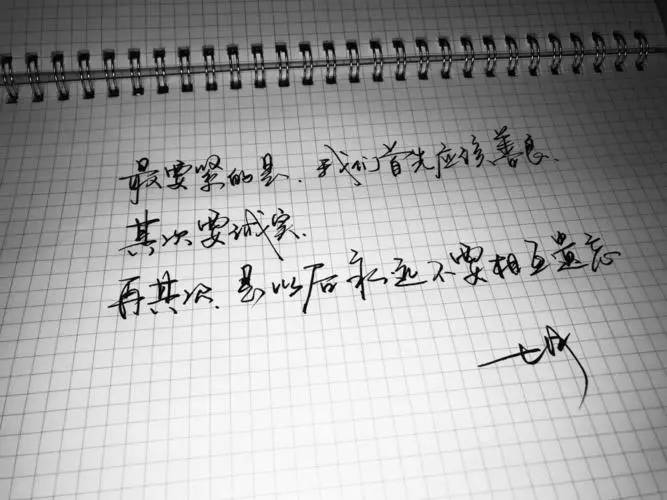 最要紧的是.我们首先应该善良.
其次要诚实.
再其次.是以后永远不要相互遗忘